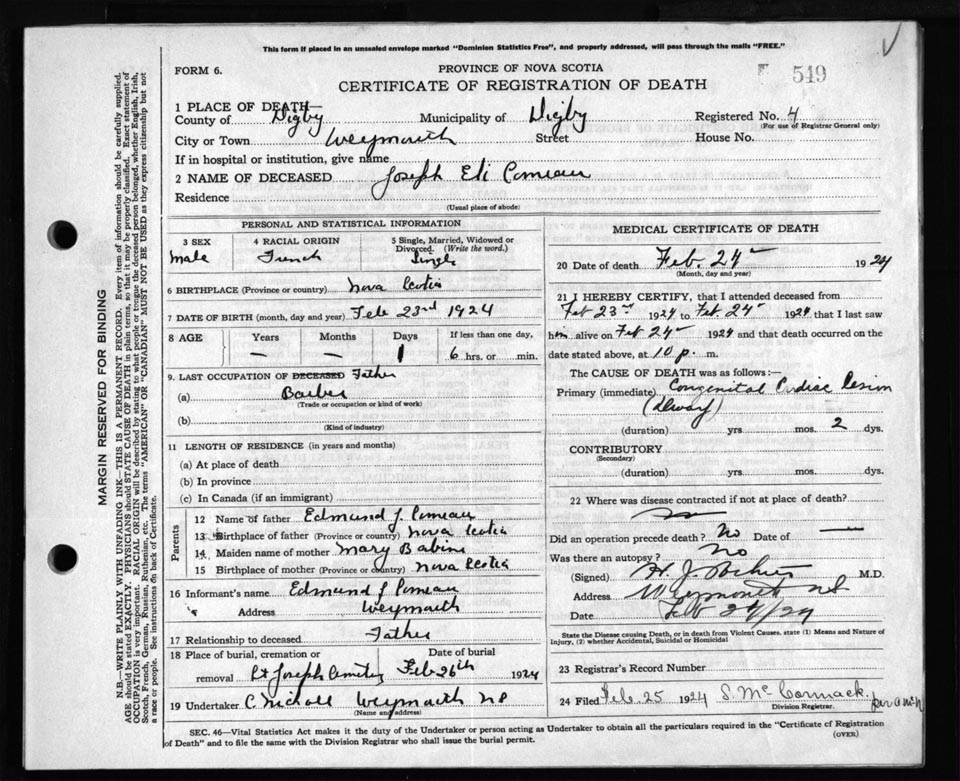 This form if placed in an unsealed envelope marked "Dominion Statistics Free", and properly addressed, will pass through the mails "FREE."
FORM 6.
PROVINCE OF NOVA SCOTIA
F 549
CERTIFICATE OF REGISTRATION OF DEATH
1 PLACE OF DEATH—
County of Digby Municipality of Digby Registered No. 4
(For use of Registrar General only)
City or Town Weymouth Street House No.
If in hospital or institution, give name
2 NAME OF DECEASED Joseph Eli Comeau
Residence
(Usual place of abode)
PERSONAL AND STATISTICAL INFORMATION
3 SEX 4 RACIAL ORIGIN 5 Single, Married, Widowed or Divorced. (Write the word.)
Male French Single
6 BIRTHPLACE (Province or country) Nova Scotia
7 DATE OF BIRTH (month, day and year) Feb 23rd 1924
8 AGE Years Months Days If less than one day,
— — 1 6 hrs. or min.
9. LAST OCCUPATION OF DECEASED Father
(a) Barber
(Trade or occupation or kind of work)
(b)
(Kind of industry)
11 LENGTH OF RESIDENCE (in years and months)
(a) At place of death
(b) In province
(c) In Canada (if an immigrant)
Parents
12 Name of father Edmund J Comeau
13 Birthplace of father (Province or country) Nova Scotia
14. Maiden name of mother Mary Babine
15 Birthplace of mother (Province or country) Nova Scotia
16 Informant's name Edmund J Comeau
Address Weymouth
17 Relationship to deceased Father
18 Place of burial, cremation or Date of burial
removal St Joseph Cemetery Feb 26th 1924
19 Undertaker C Nicholl Weymouth NS
(Name and address)
MEDICAL CERTIFICATE OF DEATH
20 Date of death Feb. 24 1924
(Month, day and year)
21 I HEREBY CERTIFY, that I attended deceased from
Feb 23rd 1924 to Feb 24 1924 that I last saw
him alive on Feb 24 1924 and that death occurred on
date stated above, at 10 p. m.
The CAUSE OF DEATH was as follows:—
Primary (immediate) Congenital Cardiac Lesion
(Dwarf)
(duration) yrs mos. 2 dys.
CONTRIBUTORY
(Secondary)
(duration) yrs. mos. dys.
22 Where was disease contracted if not at place of death?
Did an operation precede death? No Date of —
Was there an autopsy? No
(Signed) H. J. M.D.
Address Weymouth NS
Date Feb 24/24
State the Disease causing Death, or in death from Violent Causes, state (1) Means and Nature of
Injury, (2) whether Accidental, Suicidal or Homicidal
23 Registrar's Record Number
24 Filed Feb. 25 1924 S. McCormack
Division Registrar.
SEC. 46—Vital Statistics Act makes it the duty of the Undertaker or person acting as Undertaker to obtain all the particulars required in the "Certificate of Registration
of Death" and to file the same with the Division Registrar who shall issue the burial permit.
(OVER)
MARGIN RESERVED FOR BINDING
N.B.—WRITE PLAINLY WITH UNFADING INK—THIS IS A PERMANENT RECORD. Every item of information should be carefully supplied.
AGE should be stated EXACTLY. PHYSICIANS should STATE CAUSE OF DEATH in plain terms, so that it may be properly classified. Exact statement of
OCCUPATION is very important. RACIAL ORIGIN will be described by stating to what people or tongue the deceased person belonged, whether English, Irish,
Scotch, French, German, Russian, Ruthenian, etc. The terms "AMERICAN" OR "CANADIAN" MUST NOT BE USED as they express citizenship but not
a race or people. See instructions on back of Certificate.